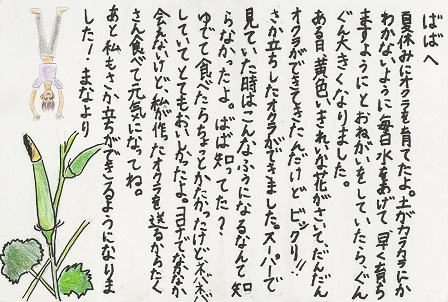 ばばへ
夏休みにオクラを育てたよ。土がカラカラにか
わかないように毎日水をあげて、早く育ち
ますようにとおねがいをしていたら、ぐん
ぐん大きくなりました。
ある日、黄色いきれいな花がさいて、だんだん
オクラができてきたんだけど、ビックリ!!
さか立ちしたオクラができました。スーパーで
見ていた時はこんなふうになるなんて知
らなかったよ。ばば知ってた?
ゆでて食べたらちょっとかたかったけど、ネバネバ
していてとてもおいしかったよ。コロナでなかなか
会えないけど、私が作ったオクラを送るからたく
さん食べて元気になってね。
あと私もさか立ちができるようになりま
した!まなより